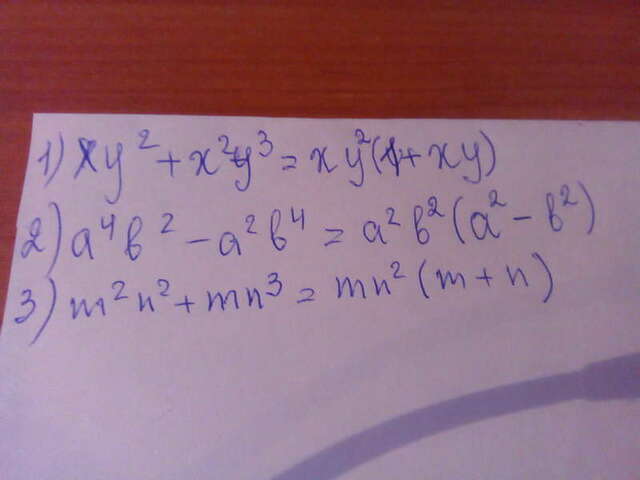 1) xy² + x²y³ = xy²(1 + xy)
2) a⁴b² - a²b⁴ = a²b²(a² - b²)
3) m²n² + mn³ = mn²(m + n)